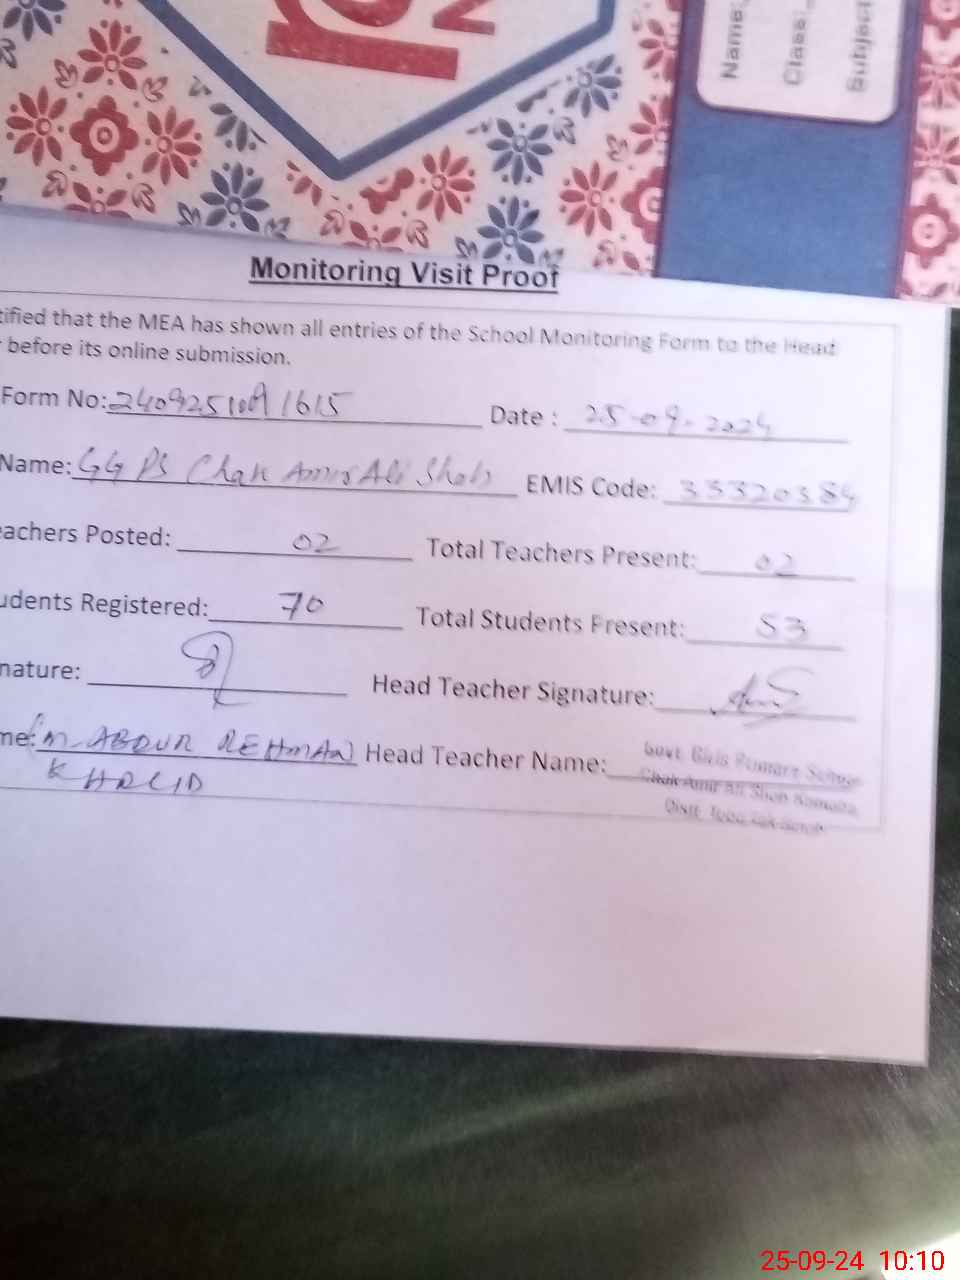 Name:
Class:
Subject
Monitoring Visit Proof
tified that the MEA has shown all entries of the School Monitoring Form to the Head
before its online submission.
Form No: 240925100A1615 Date : 25-09-2024
Name: GGPS Chak Amir Ali Shah EMIS Code: 33320384
eachers Posted: 02 Total Teachers Present: 02
udents Registered: 70 Total Students Present: 53
nature: Head Teacher Signature:
me: M. ABDUR REHMAN Head Teacher Name:
KHALID
Govt. Girls Primary School
Chak Amir Ali Shah
Distt. Toba Tek Singh
25-09-24 10:10